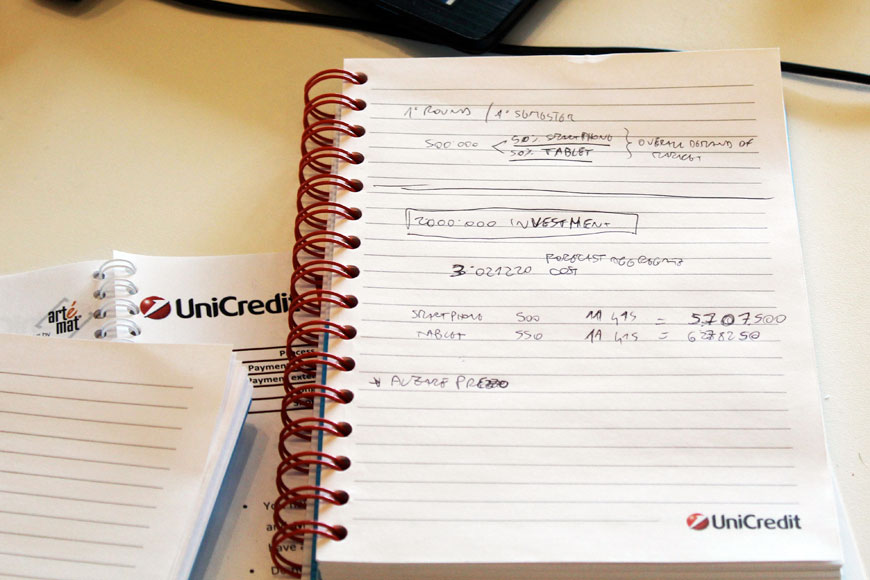 1° ROUND / 1° SEMESTER
500.000
50% SMARTPHONE
50% TABLET
OVERALL DEMAND OF
MARKET
2000.000 INVESTMENT
3.021220
FORECAST AGGREGATE
COST
SMARTPHONE 500 11 415 = 5.707.500
TABLET 550 11 415 = 6278250
PREZZO
UniCredit
arté
mat
UniCredit
Process
Payment
Payment